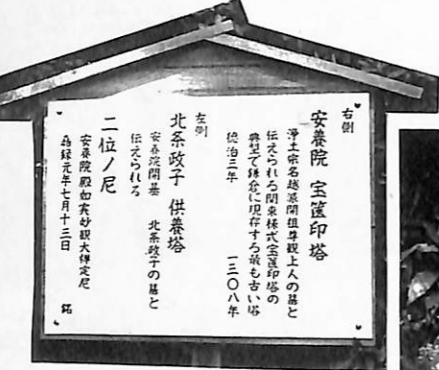 右側
安養院　宝篋印塔
浄土宗名越派開祖尊観上人の墓と
伝えられる関東様式宝篋印塔の
典型で鎌倉に現存する最も古い塔
徳治三年　一三〇八年
左側
北条政子　供養塔
安養院開基　北条政子の墓と
伝えられる
二位ノ尼
安養院殿如実妙観大禅定尼
嘉禄元年七月十三日　銘